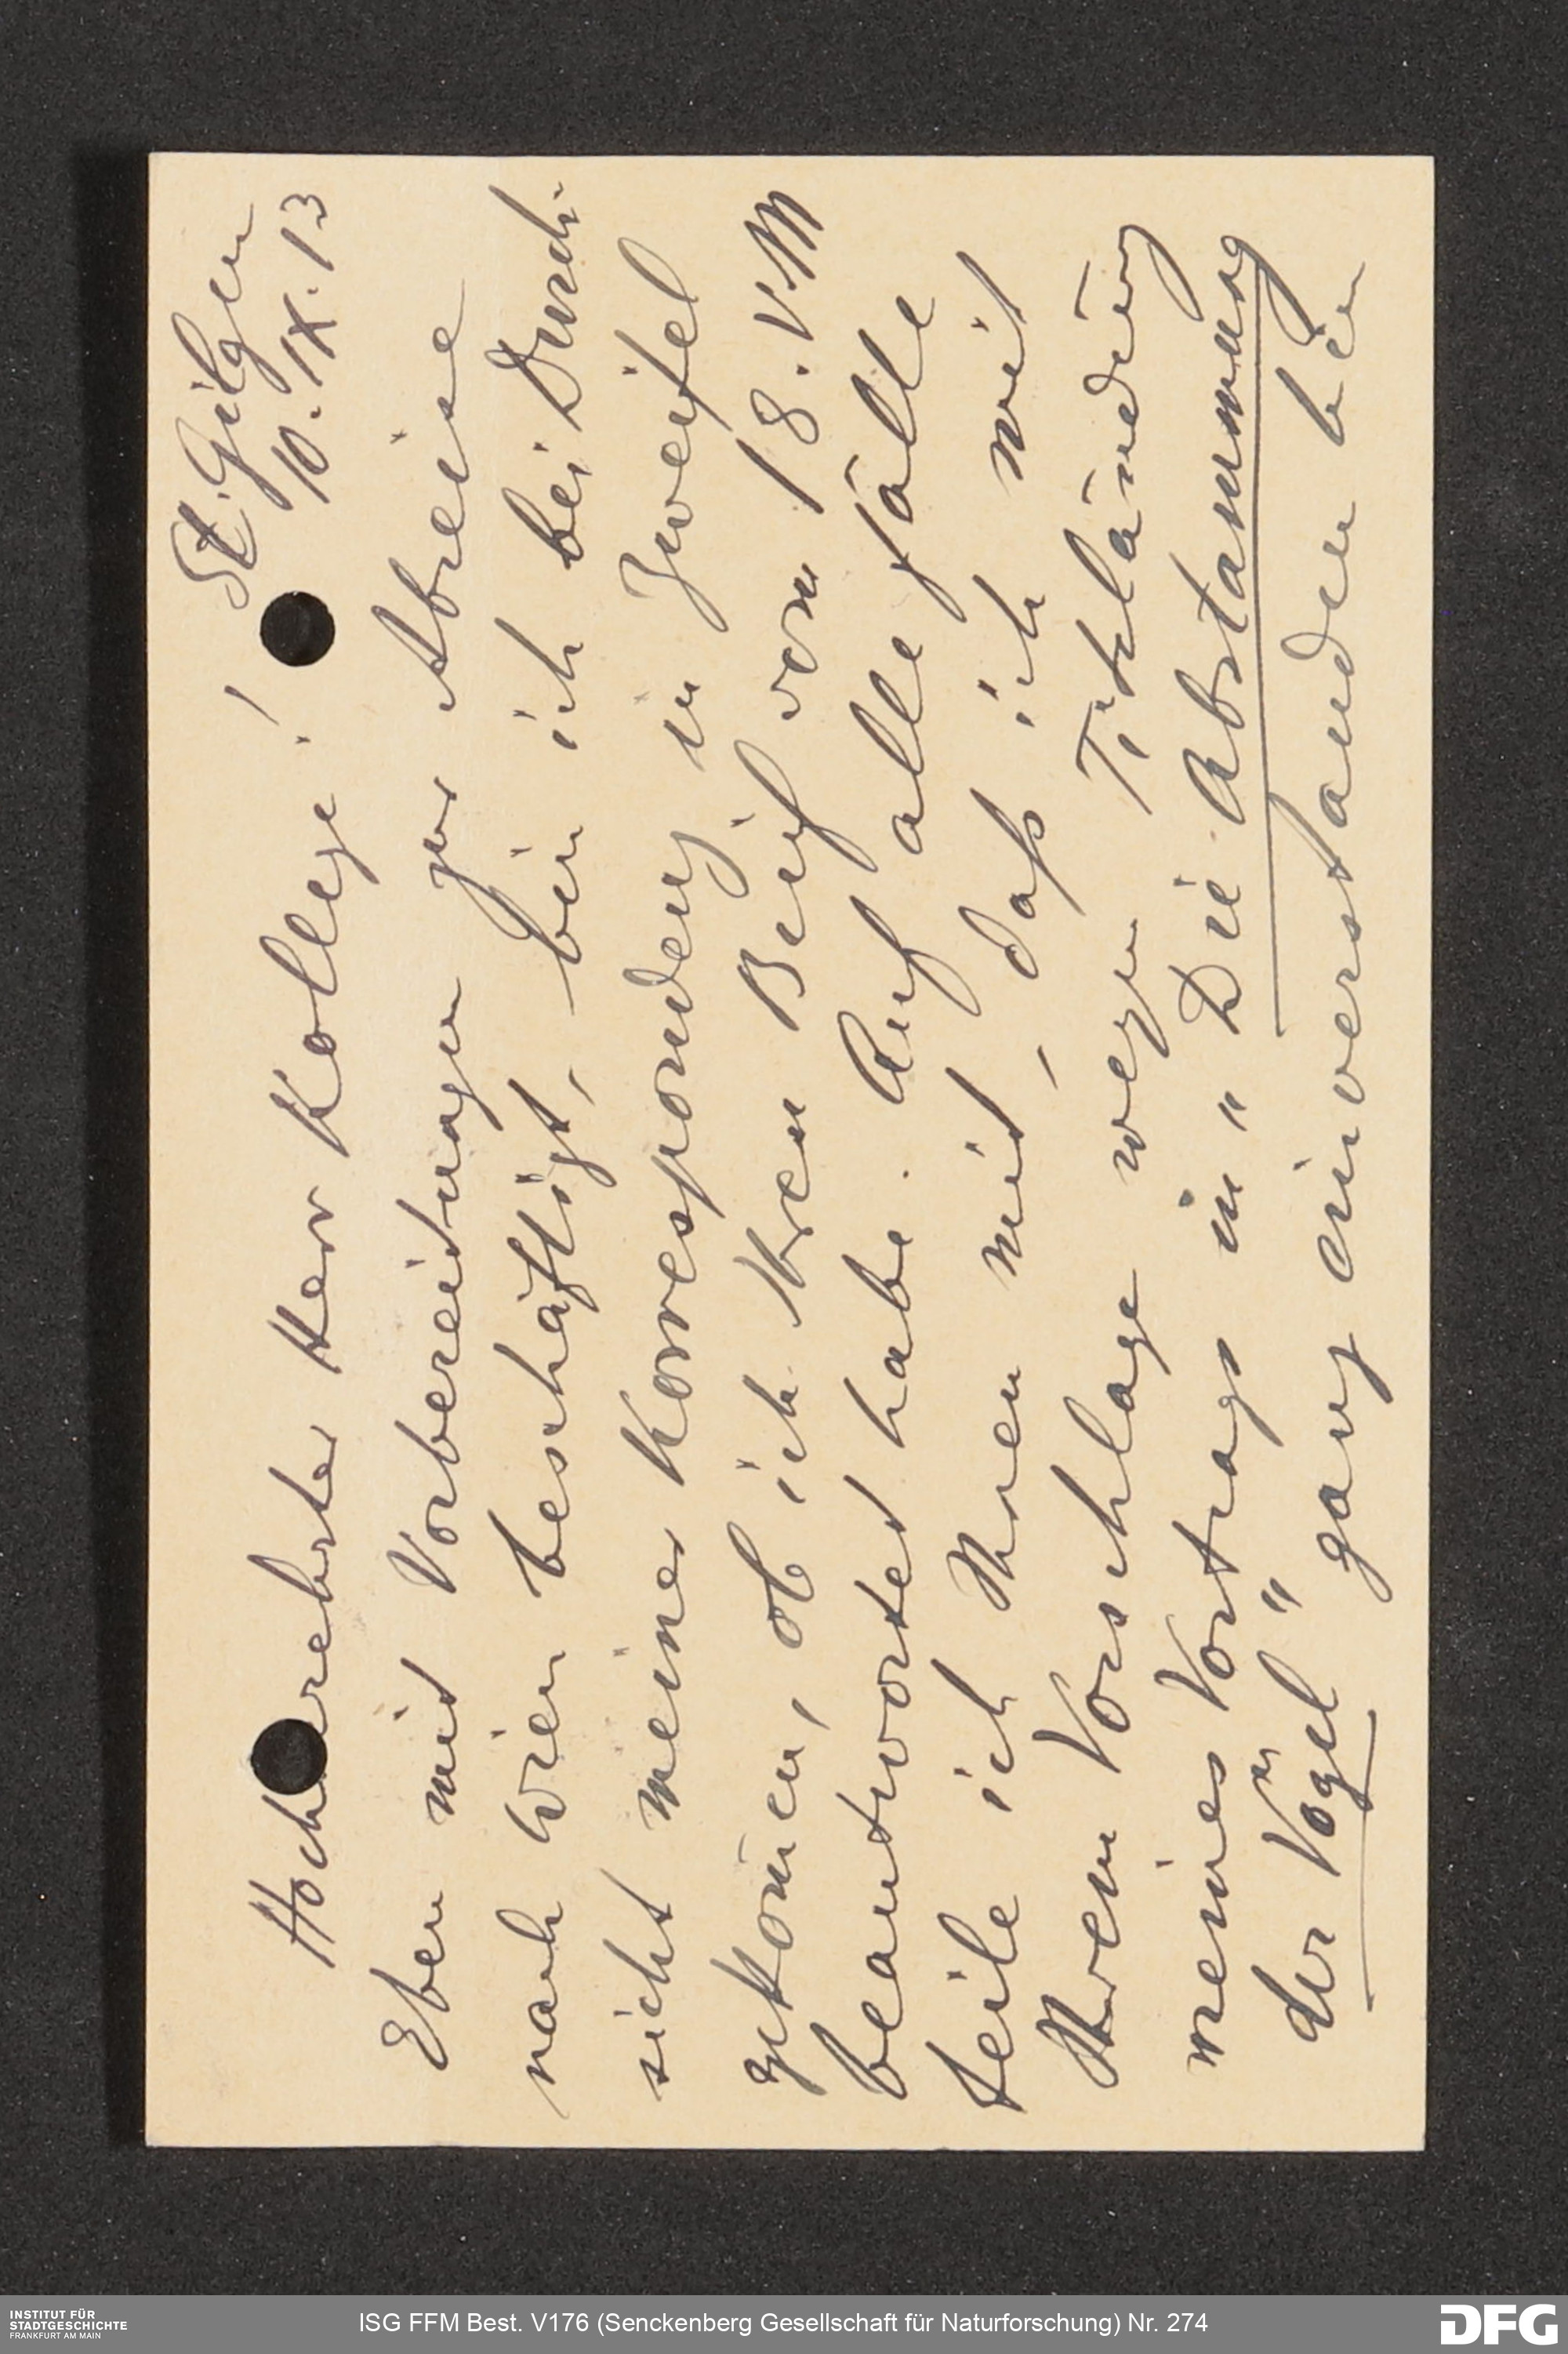 St. Gilgen
10. IX. 13
Hochverehrter Herr Kollege!
Eben mit Vorbereitungen zur Abreise
nach Wien beschäftigt, bin ich bei Durch-
sicht meiner Korrespondenz in Zweifel
gekom̄en, ob ich Ihren Brief vom 18. VIII
beantwortet habe. Auf alle Fälle
teile ich Ihnen mit, daß ich mit
Ihrem Vorschlage wegen Titeländerung
meines Vortrags in "Die Abstammung
der Vögel" ganz einverstanden bin
INSTITUT FÜR
STADTGESCHICHTE
FRANKFURT AM MAIN
ISG FFM Best. V176 (Senckenberg Gesellschaft für Naturforschung) Nr. 274
DFG